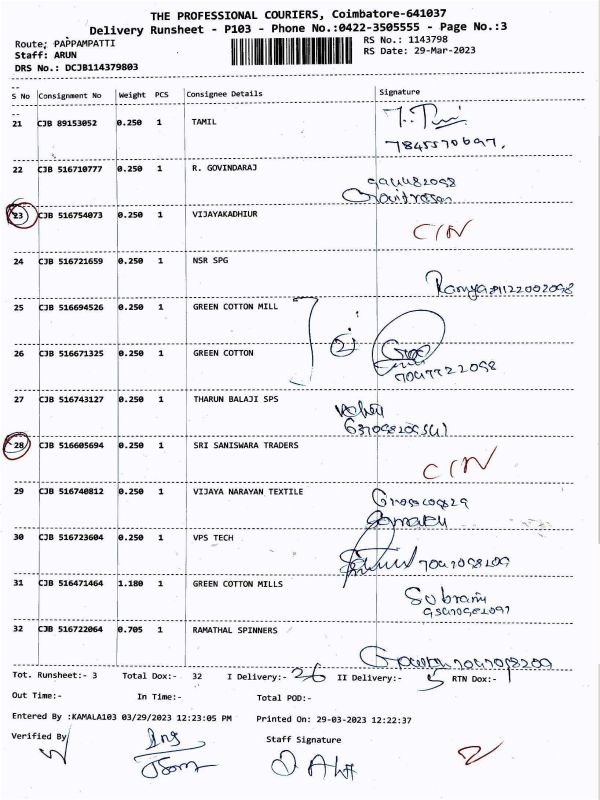 THE PROFESSIONAL COURIERS, Coimbatore-641037
Delivery Runsheet - P103 - Phone No.:0422-3505555 - Page No.:3
Route; PAPPAMPATTI
RS No.: 1143798
Staff: ARUN
RS Date: 29-Mar-2023
DRS No.: DCJB114379803
S No Consignment No Weight PCS Consignee Details Signature
21 CJB 89153052 0.250 1 TAMIL
22 CJB 516710777 0.250 1 R. GOVINDARAJ
23 CJB 516754073 0.250 1 VIJAYAKADHIUR
C/N
24 CJB 516721659 0.250 1 NSR SPG
Ramya
25 CJB 516694526 0.250 1 GREEN COTTON MILL
26 CJB 516671325 0.250 1 GREEN COTTON
27 CJB 516743127 0.250 1 THARUN BALAJI SPS
28 CJB 516605694 0.250 1 SRI SANISWARA TRADERS
C/N
29 CJB 516740812 0.250 1 VIJAYA NARAYAN TEXTILE
30 CJB 516723604 0.250 1 VPS TECH
31 CJB 516471464 1.180 1 GREEN COTTON MILLS
Subrami
32 CJB 516722064 0.705 1 RAMATHAL SPINNERS
Tot. Runsheet:- 3 Total Dox:- 32 I Delivery:- 26 II Delivery:- 5 RTN Dox:- 1
Out Time:- In Time:- Total POD:-
Entered By :KAMALA103 03/29/2023 12:23:05 PM Printed On: 29-03-2023 12:22:37
Verified By Staff Signature